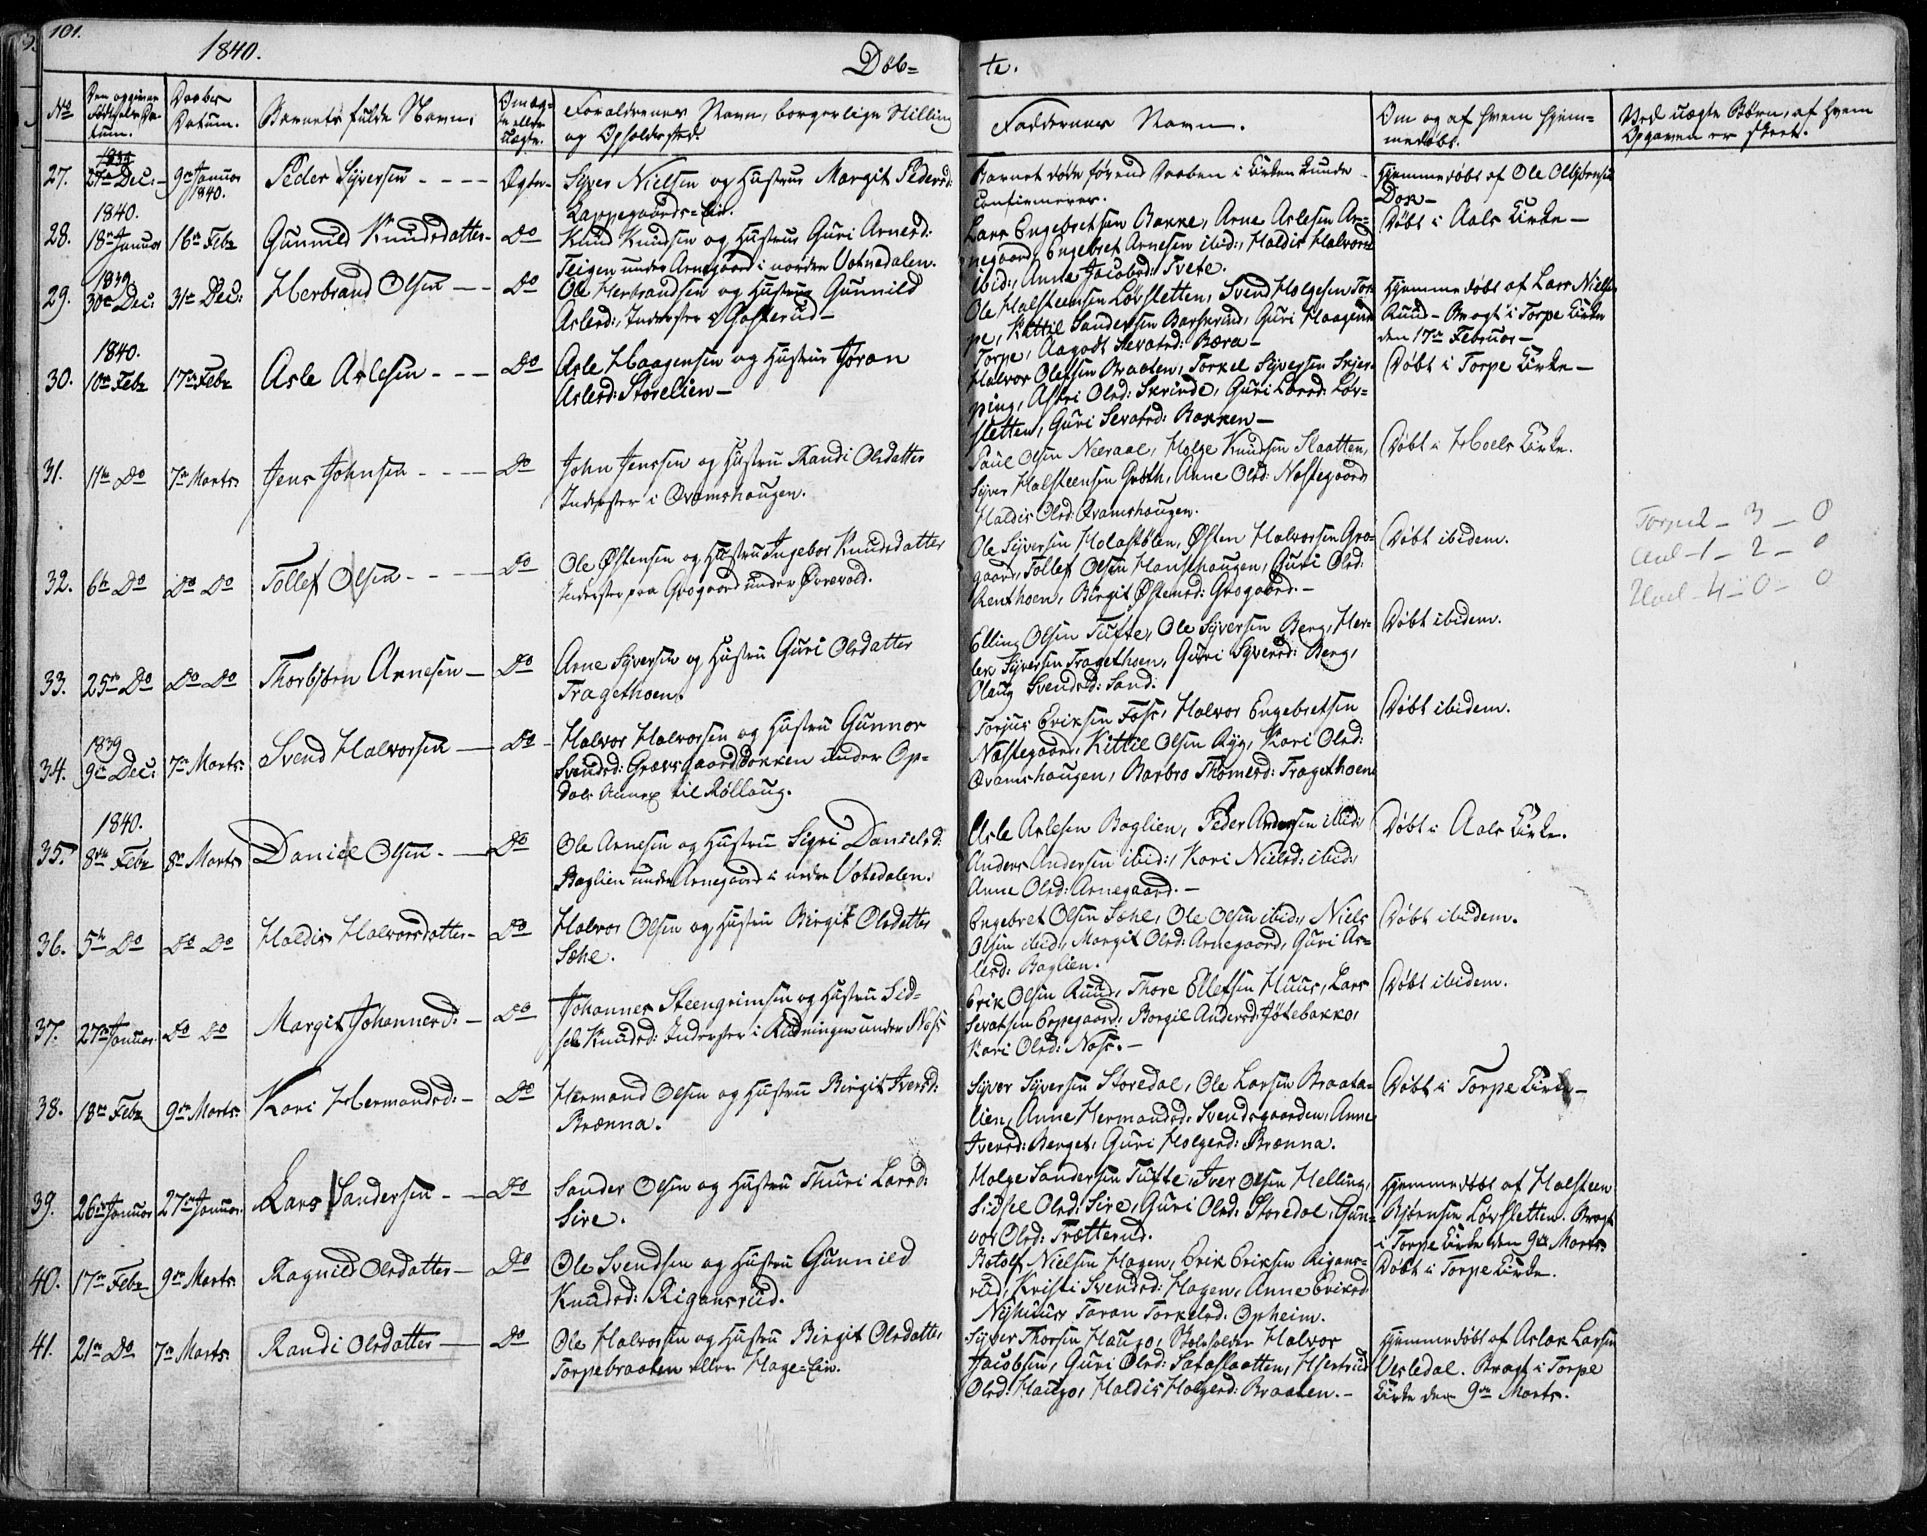 101.
1840.
Døb-
te.
No
Den opgivne Fødselsda- tum.
Daabs Datum.
Barnets fulde Navn.
Om æg- te eller Uægte.
Forældrenes Navn, borgerlige Stilling
og Opholdssted.
Faddernes Navn.
Om og af hvem hjem-
medøbt.
Ved uægte Børn, af hvem
Opgaven er skeet.
27.
1839
27de Dec:
9de Januar 1840.
Peder Syversen
Ægte
Syver Nielsen og Hustrue Margit Pedersd:
Lappegaards-Eie.
Barnet døde førend Daaben i Kirken kunde
Confirmeres.
Hjemmedøbt af Ole Olsen
28.
1840.
18de Januar
16de Febr
Gunild Knudsdatter
Do
Knud Knudsen og Hustrue Guri Arnesd:
Teigen under Arnegaard i nordre Votnedalen.
Lars Engebretsen Bakke, Arne Aslesen Ar-
negaard, Engebret Arnesen ibid:, Haldis Halvorsd
ibid:, Anne Jacobsd: Tvete.
Døbt i Aals Kirke
29.
1839
30te Dec:
31te Dec:
Herbrand Olsen
Do
Ole Herbrandsen og Hustrue Gunnild
Aslesd:, Inderster Golterud
Ole Halsteensen Løvsletten, Svend Holgesen Tor-
pe, Kittil Sandersen Barskrind, Guri Haagensd
Torpe, Aagodt Sevatsd: Bæra
Hjemmedøbt af Lars Nielsen
Ruud - Bragt i Torpe Kirke
den 17de Februar
30.
1840.
10de Febr
17de Febr
Asle Aslesen
Do
Asle Haagensen og Hustrue Jøran
Aslesd: Storelien
Halvor Olefsen Braaten, Torkel Syversen Skjer-
ping, Astri Olsd: Skrinde, Guri Larsd: Løv-
sletten, Guri Sevatsd: Bakken
Døbt i Torpe Kirke
31.
11te Do
7de Marts
Jens Johnsen
Do
John Jenssen og Hustru Randi Olsdatter
Inderster i Qvamshaugen.
Paul Olsen Neeraal, Holge Knudsen Slaatten,
Syver Halsteensen Grøth, Anne Olsd: Næstegaard,
Haldis Olsd: Qvamshaugen.
Døbt i Hoels Kirke.
32.
6te Do
Do Do
Tollef Olsen
Do
Ole Østensen og Hustru Ingebor Knudsdatter
Inderster paa Grogaard under Øvrevold.
Ole Syversen Holastølen, Østen Halvorsen Gro-
gaard, Tollef Olsen Hanshaugen, Guri Olsd:
Renthoen, Birgit Østensd: Grogaard.
Døbt ibidem.
33.
25de Do
Do Do
Thorbjørn Arnesen
Do
Arne Syversen og Hustru Guri Olsdatter
Tragethoen.
Elling Olsen Tufte, Ole Syversen Berg, Her-
lek Syversen Tragethoen, Guri Syversd: Berg,
Olaug Svendsd: Sand.
Døbt ibidem.
34.
1839
9de Dec:
7de Marts
Svend Halvorsen
Do
Halvor Halvorsen og Hustru Gunnor
Svendsd: Grævsgaardbakken under Op-
dals Annex til Rollaug.
Torjus Eriksen Foss, Halvor Engebretsen
Næstegaard, Kittil Olsen Ryg, Kari Olsd:
Qvamshaugen, Barbro Thomesd: Tragethoen
Døbt ibidem.
35.
1840.
8de Febr
8de Marts
Daniel Olsen
Do
Ole Arnesen og Hustru Sigri Danielsd:
Baglien under Arnegaard i nedre Votnedalen.
Asle Aslesen Baglien, Peder Andersen ibid:,
Anders Andersen ibid:, Kari Nielsd: ibid:,
Anne Olsd: Arnegaard.
Døbt i Aals Kirke.
36.
5te Do
Do Do
Haldis Halvorsdatter
Do
Halvor Olsen og Hustru Birgit Olsdatter
Sæhe.
Engebret Olsen Sæhe, Ole Olsen ibid:, Niels
Olsen ibid:, Margit Olsd: Arnegaard, Guri As-
lesd: Baglien.
Døbt ibidem.
37.
27de Januar
Do Do
Margit Johannesd:
Do
Johannes Steengrimsen og Hustru Sid-
sel Knudsd: Inderster i Rudningen under Næss
Erik Olsen Ruud, Thore Ellefsen Huus, Lars
Sevatsen Oppegaard, Borgil Andersd: Jøtebakke,
Kari Olsd: Næss.
Døbt ibidem.
38.
18de Febr
9de Marts
Kari Hermandsd:
Do
Hermand Olsen og Hustru Birgit Iversd:
Brænna.
Syver Syversen Storedal, Ole Larsen Braata-
lien, Anne Hermandsd: Svendsgaarden, Anne
Iversd: Berget, Guri Holgesd: Brænna.
Døbt i Torpe Kirke
39.
26de Januar
27de Januar
Lars Sandersen
Do
Sander Olsen og Hustru Thuri Larsd:
Sire.
Holge Sandersen Tufte, Iver Olsen Helling,
Sidsel Olsd: Sire, Guri Olsd: Storedal, Gun-
vor Olsd: Trætterud.
Hjemmedøbt af Halsteen
Bjørnsen Løvsletten. Bragt
i Torpe Kirke den 9de Marts.
40.
17de Febr
9de Marts
Ragnild Olsdatter
Do
Ole Svendsen og Hustru Gunnild
Knudsd: Rigansrud.
Botolf Nielsen Hagen, Erik Eriksen Rigans-
rud, Kristi Svendsd: Hagen, Anne Eriksd:
Nyhuus, Jøran Torkelsd: Opheim.
Døbt i Torpe Kirke.
41.
21de Do
7de Marts
Randi Olsdatter
Do
Ole Halvorsen og Hustru Birgit Olsdatter
Torpebraaten eller Hage-Eie.
Syver Thorsen Hauge, Skoleholder Halvor
Jacobsen, Guri Olsd: Sataslaatten, Hjertrud
Olsd: Hauge, Haldis Holgesd: Braaten.
Hjemmedøbt af Aslak Larsen
Vesledal. Bragt i Torpe
Kirke den 9de Marts.
Torpe - 3 - 0
Aal - 1 - 2 - 0
Hoel - 4 - 0 - 0